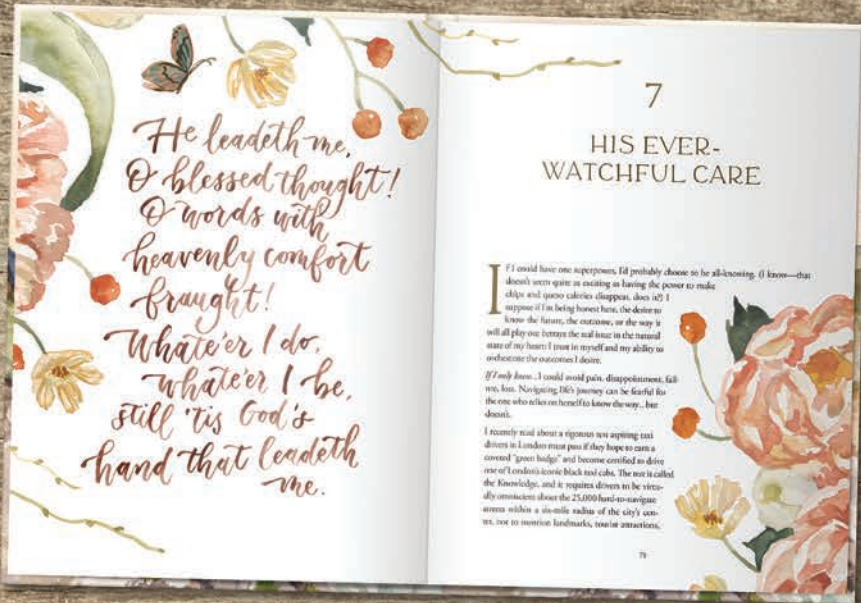 He leadeth me,
O blessed thought!
O words with
heavenly comfort
fraught!
Whate'er I do,
whate'er I be,
still 'tis God's
hand that leadeth
me.
7
HIS EVER-
WATCHFUL CARE
If I could have one superpower, I'd probably choose to be all-knowing. (I know—that
doesn't seem quite as exciting as having the power to make
chips and queso calories disappear, does it?) I
suppose if I'm being honest here, the desire to
know the future, the outcome, or the way it
will all play out betrays the real issue in the natural
state of my heart: I trust in myself and my ability to
orchestrate the outcomes I desire.
If I only knew...I could avoid pain, disappointment, fail-
ure, loss. Navigating life's journey can be fearful for
the one who relies on herself to know the way...but
doesn't.
I recently read about a rigorous test aspiring taxi
drivers in London must pass if they hope to earn a
coveted "green badge" and become certified to drive
one of London's iconic black taxi cabs. The test is called
the Knowledge, and it requires drivers to be virtu-
ally omniscient about the 25,000 hard-to-navigate
streets within a six-mile radius of the city's cen-
ter, not to mention landmarks, tourist attractions,
79